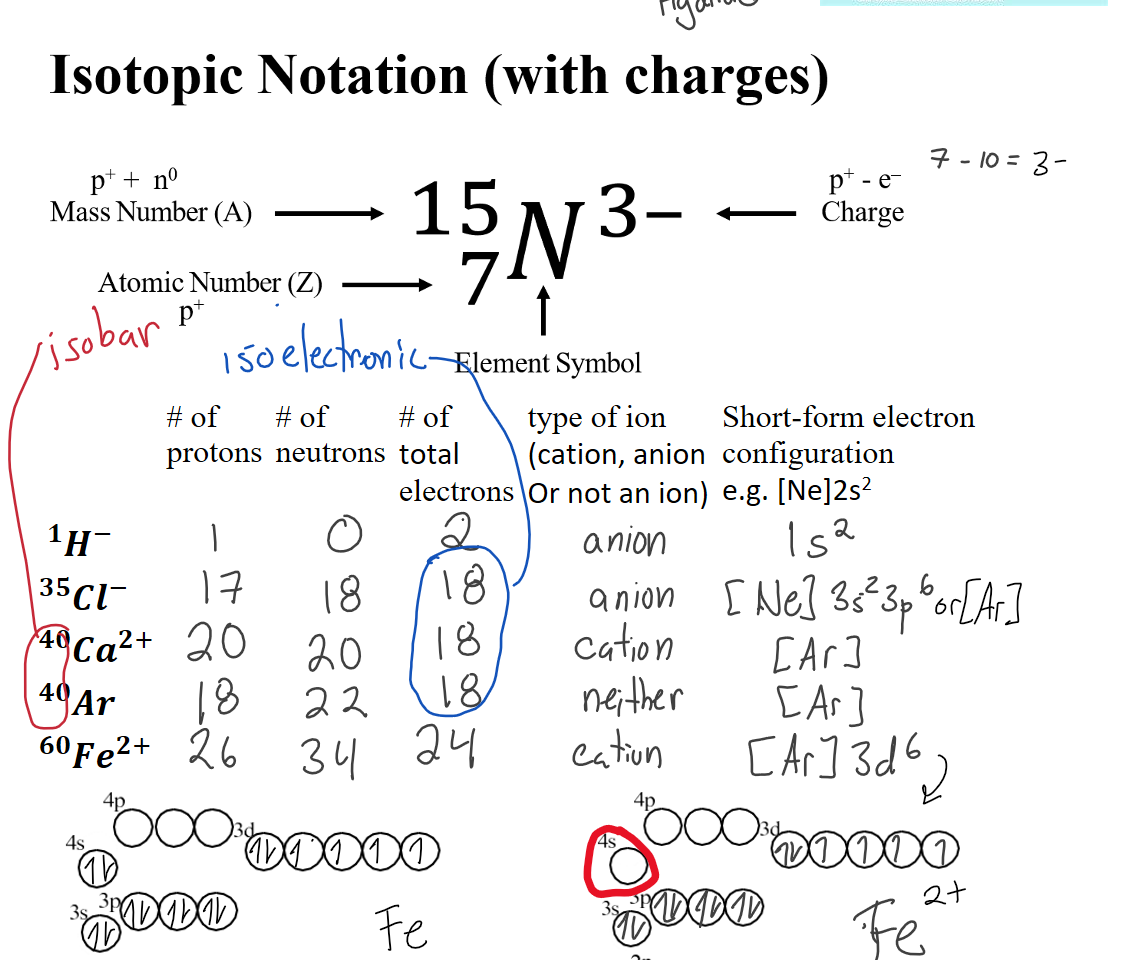 Isotopic Notation (with charges)
7 - 10 = 3-
p⁺ + n⁰
Mass Number (A)
¹⁵₇N³⁻
p⁺ - e⁻
Charge
Atomic Number (Z)
p⁺
isobar
isoelectronic
Element Symbol
# of protons
# of neutrons
# of total electrons
type of ion (cation, anion Or not an ion)
Short-form electron configuration e.g. [Ne]2s²
¹H⁻ 1 0 2 anion 1s²
³⁵Cl⁻ 17 18 18 anion [Ne] 3s²3p⁶ or [Ar]
⁴⁰Ca²⁺ 20 20 18 cation [Ar]
⁴⁰Ar 18 22 18 neither [Ar]
⁶⁰Fe²⁺ 26 34 24 cation [Ar] 3d⁶
4p
3d
4s
3p
3s
Fe
4p
3d
4s
3p
3s
Fe²⁺